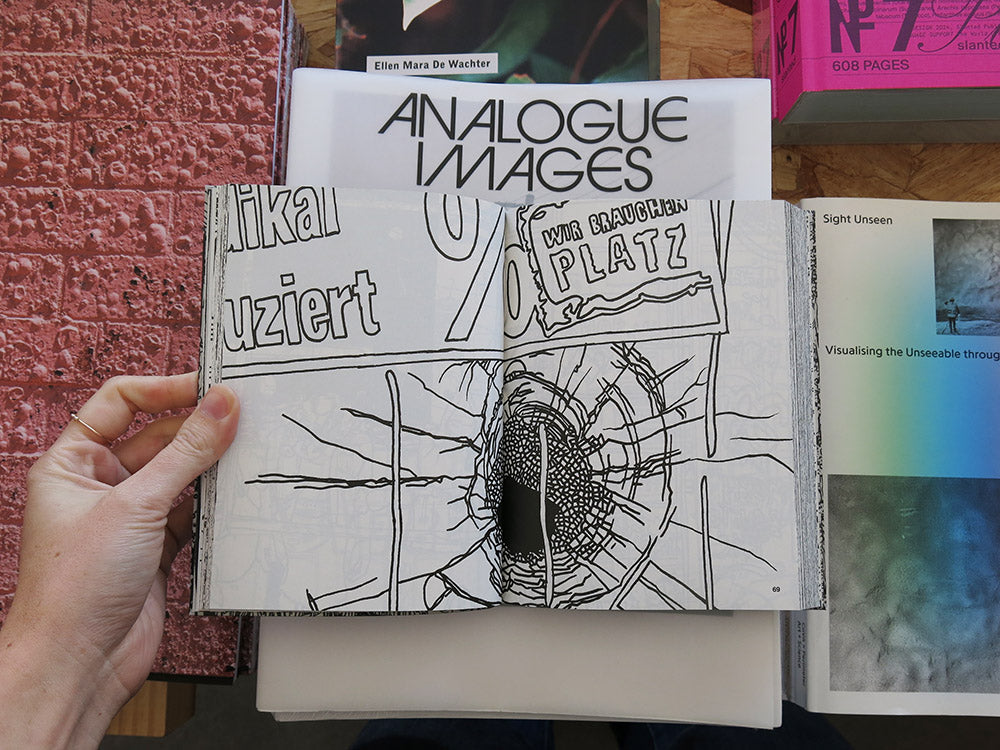 Ellen Mara De Wachter
Nº7
slanted
608 PAGES
ANALOGUE
IMAGES
dikal
%
uziert
%
WIR BRAUCHEN
PLATZ
69
Sight Unseen
Visualising the Unseeable throug